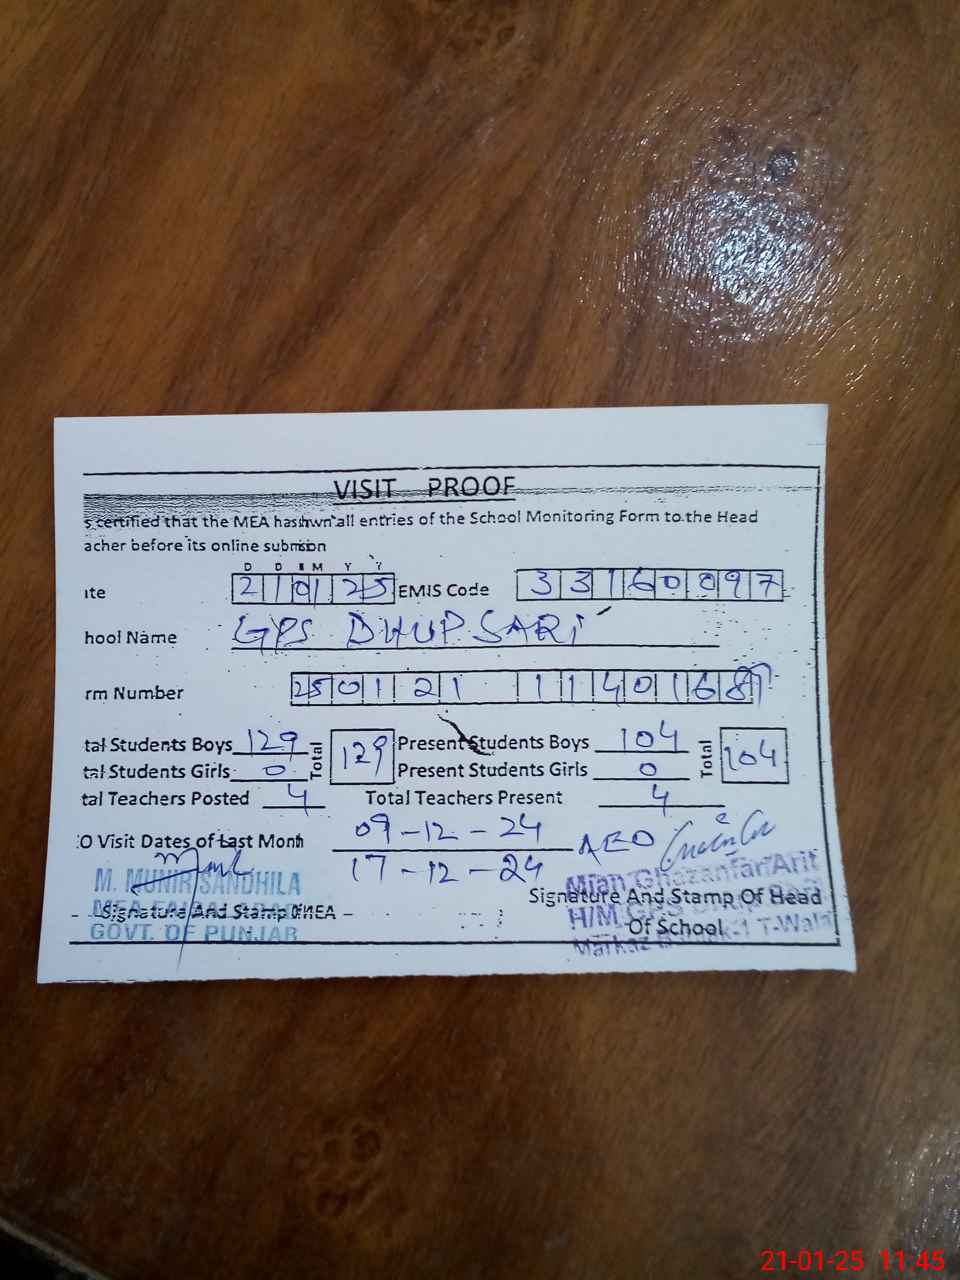 VISIT PROOF
s certified that the MEA has shwn all entries of the School Monitoring Form to the Head
acher before its online submision
D D M M Y Y
ate 21 01 25 EMIS Code 33160097
hool Name GPS DHUPSARI
rm Number 250121 1140168
tal Students Boys 129 Total 129 Present Students Boys 104 Total 104
tal Students Girls 0 Present Students Girls 0
tal Teachers Posted 4 Total Teachers Present 4
O Visit Dates of Last Month 09-12-24 AEO
17-12-24
M. MUNIR SANDHILA Mian Ghazanfar Arif
MEA Signature And Stamp Of Head
Signature And Stamp Of MEA H/M GPS
GOVT. OF PUNJAB Of School
Markaz T-Wala
21-01-25 11:45